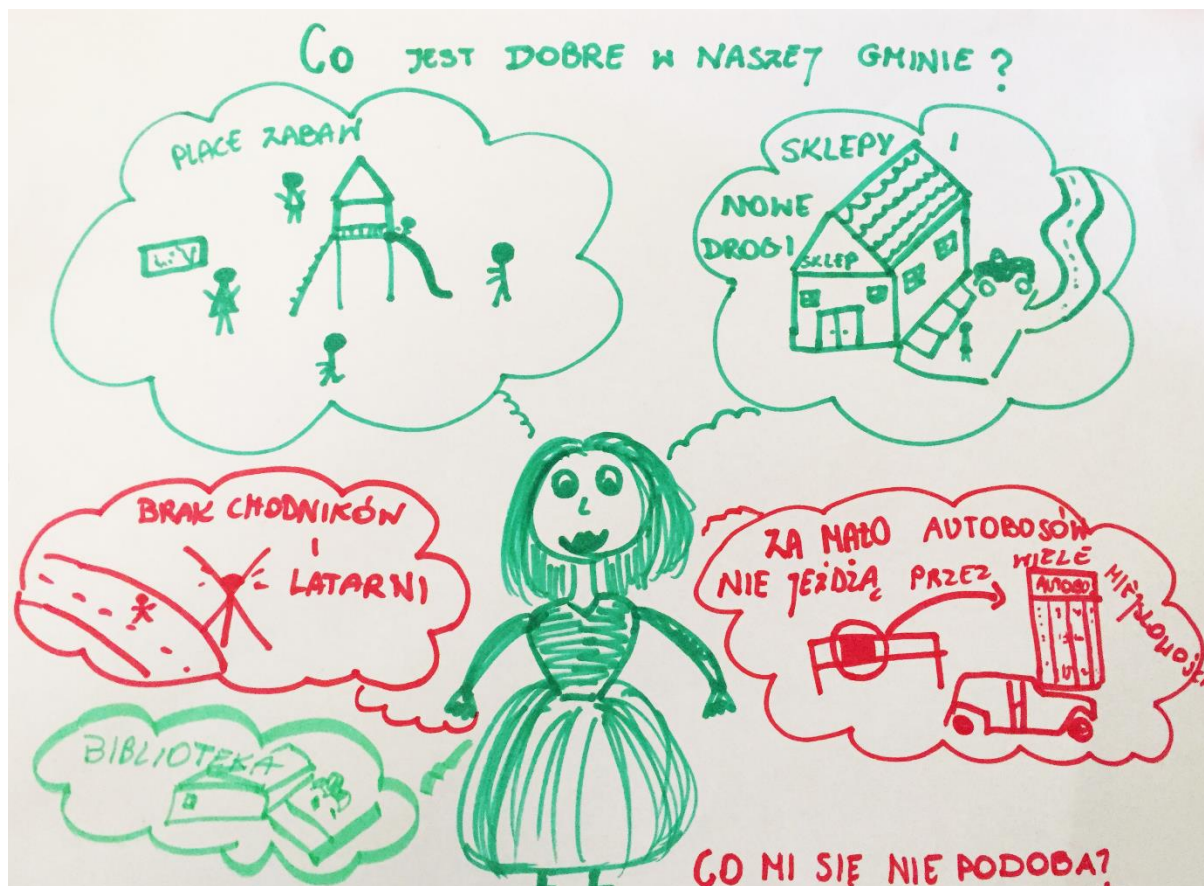 CO JEST DOBRE W NASZEJ GMINIE?
PLACE ZABAW
SKLEPY I
NOWE
DROGI
SKLEP
BRAK CHODNIKÓW
I
LATARNI
ZA MAŁO AUTOBOSÓW
NIE JEŻDŻĄ PRZEZ WIELE
MIEJSCOWOŚCI
AUTOBO
BIBLIOTEKA
CO MI SIĘ NIE PODOBA?